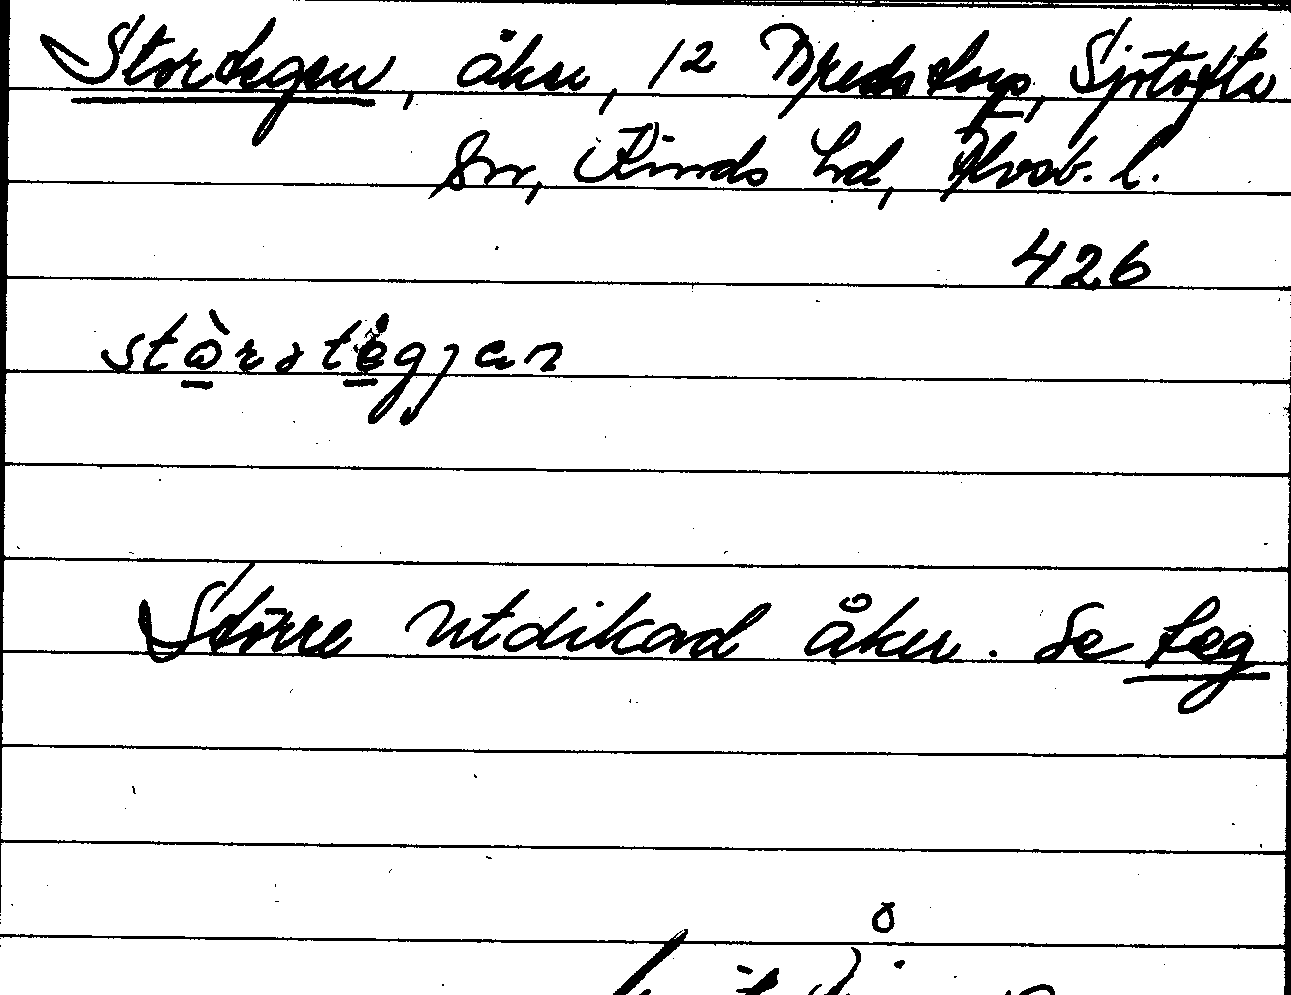 Stortegen, åker, 12 Bredstorp, Sjötofta
sn, Kinds hd, Älvsb. l.
426
stòrstègjen
Större utdikad åker. Se teg